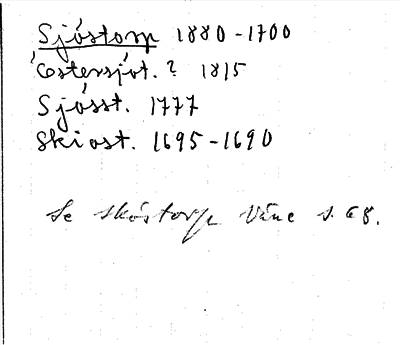 Sjöstorp 1880-1700
Östersjöt. ? 1815
Sjösst. 1777
Skiost. 1695-1690
Se Sköstorp Våne s. 68.